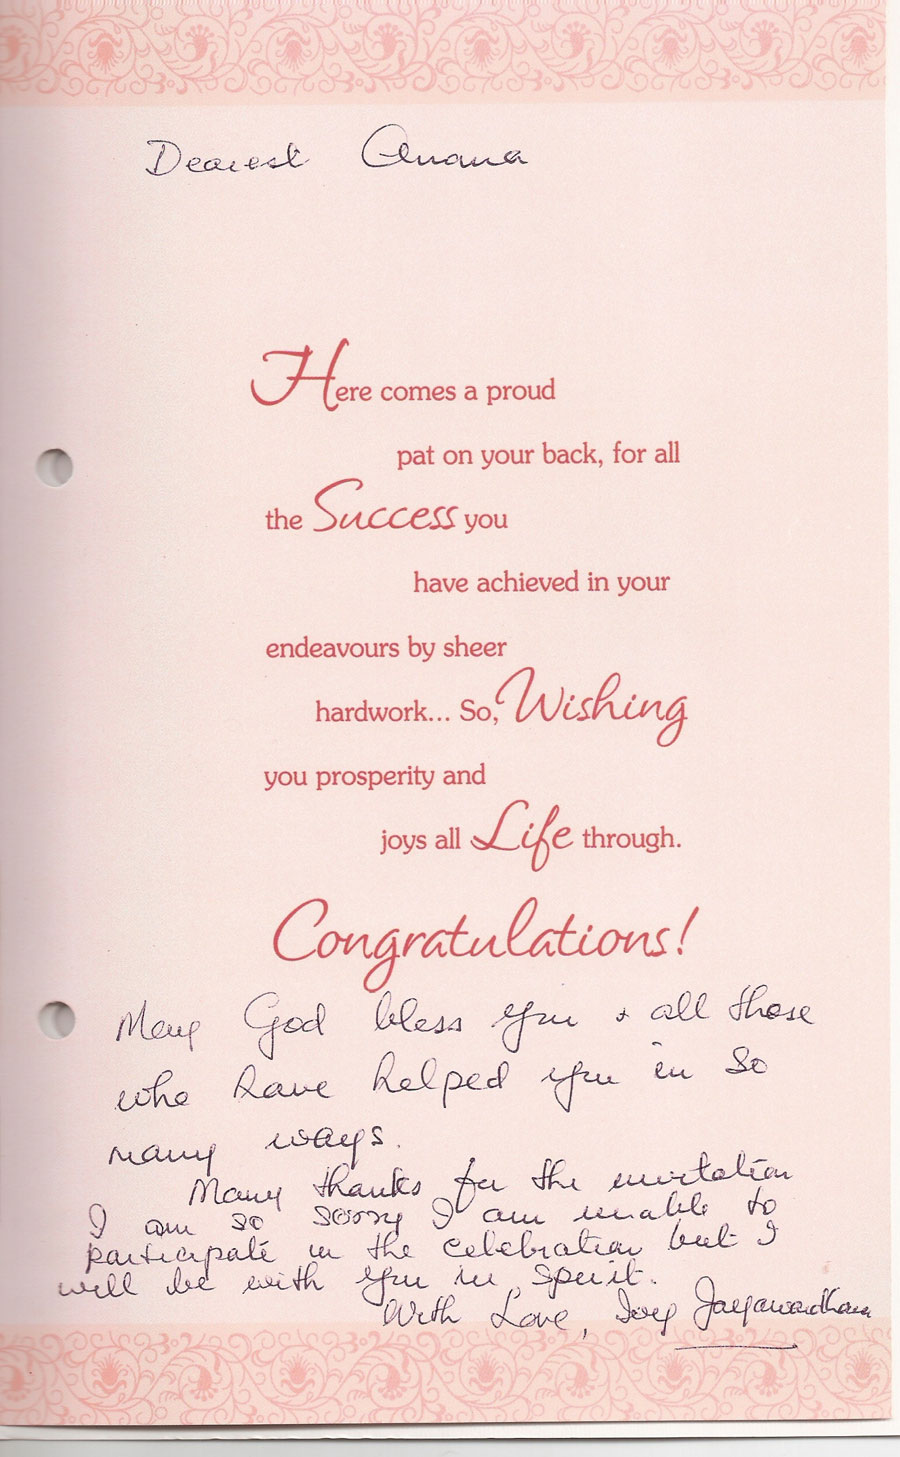 Dearest
Here comes a proud
pat on your back, for all
the Success you
have achieved in your
endeavours by sheer
hardwork... So, Wishing
you prosperity and
joys all Life through.
Congratulations!
May God bless you + all those
who have helped you in so
many ways.
Many thanks for the invitation
I am so sorry I am unable to
participate in the celebration but I
will be with you in spirit.
With Love,